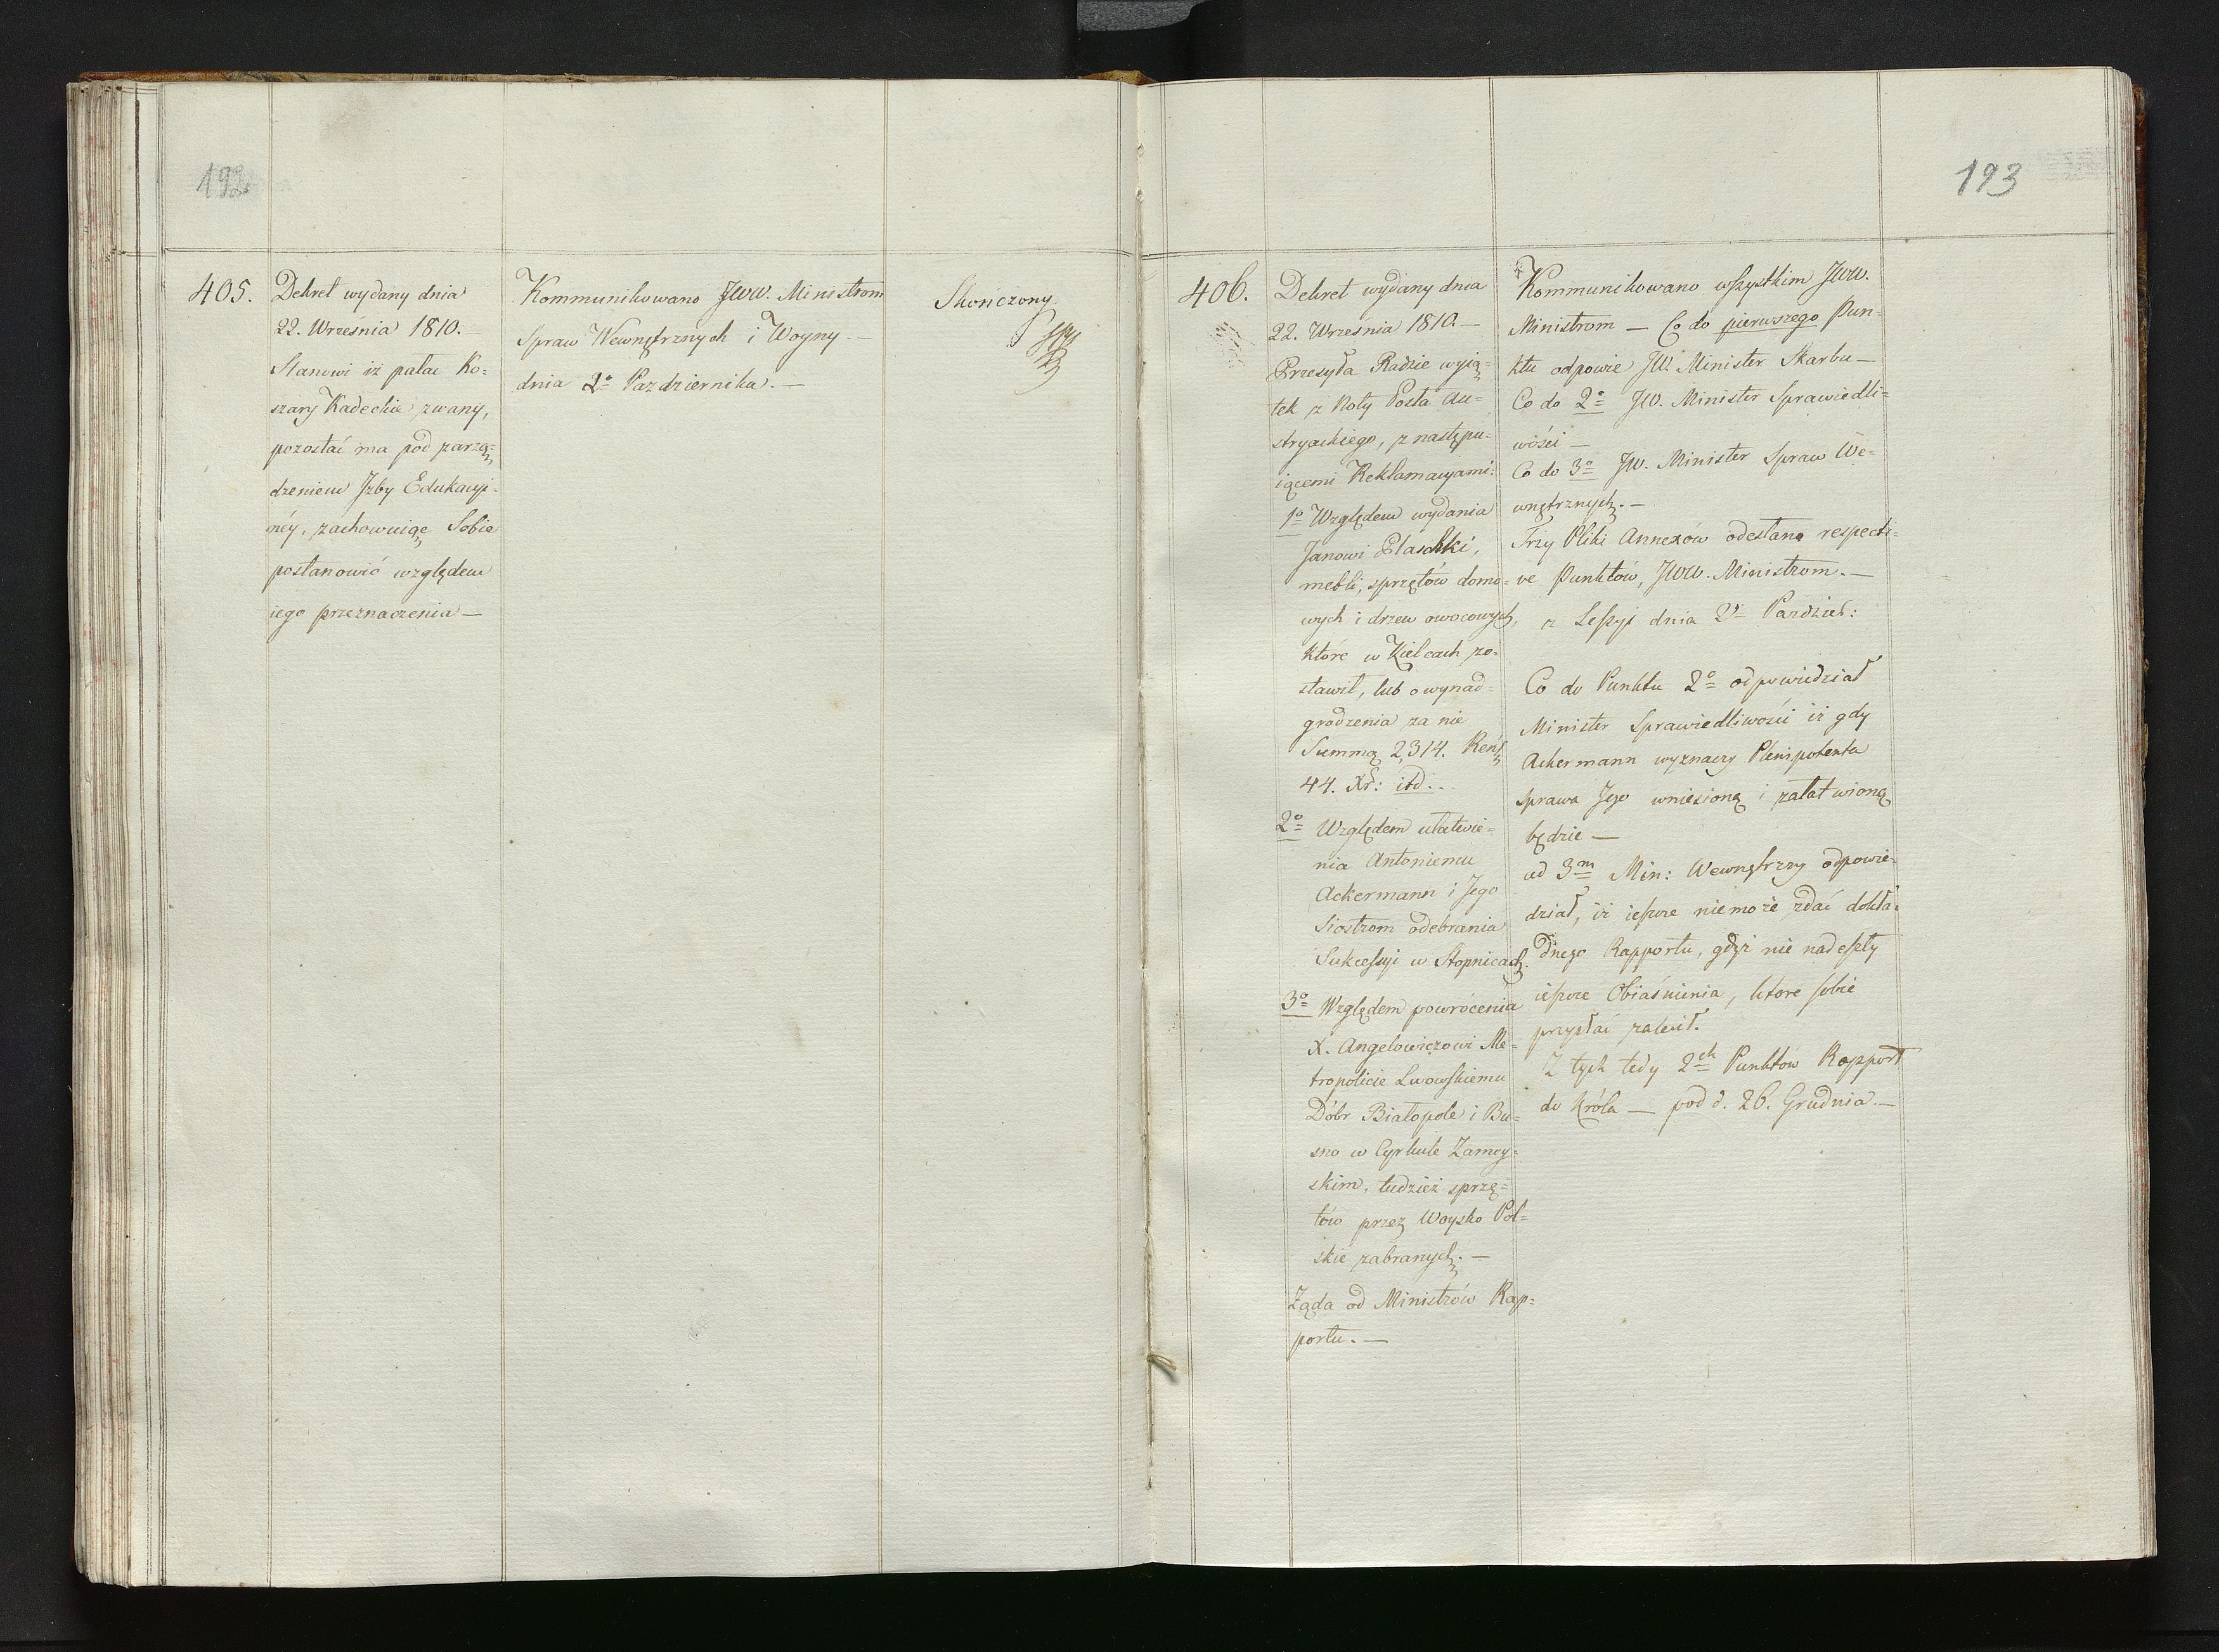 192
405.
Dekret wydany dnia
22. Września 1810.—
Stanowi iż pałac Ko=
szary Kadeckie zwany,
pozostać ma pod zarzą=
dzeniem Jzby Edukacyi-
néy, zachowuiąc Sobie
postanowić względem
iego przeznaczenia —
Kommunikowano JWW. Ministrom
Spraw Wewnętrznych i Woyny.—
dnia 2º Pazdziernika.—
Skończony
193
406.
Dekret wydany dnia
22. Wrzesnia 1810.—
Przesyła Radzie wyią=
tek z Noty Posła Au=
stryackiego, z następu=
iącemi Reklamacyami:
1º Względem wydania
Janowi Plaschki,
mebli, sprzętów domo=
wych i drzew owocowych,
które w Kielcach zo=
stawił, lub o wynad=
grodzenia za nie
Summą 2,314. Reń
44. Xr: itd..
2º Względem ułatwie=
nia Antoniemu
Ackermann i Jego
Siostrom odebrania
Sukcessyi w Stopnicach.
3º Względem powrócenia
X. Angelowiczowi Me=
tropolicie Lwowskiemu
Dóbr Białopole i Bu=
sno w Cyrkule Zamoy=
skim, tudzież sprzę=
tów przez Woysko Pol=
skie zabranych.—
Żąda od Ministrów Rap=
portu.—
Kommunikowano wszystkim JWW.
Ministrom — Co do pierwszego Pun=
ktu odpowie JW. Minister Skarbu —
Co do 2º JW. Minister Sprawiedli=
wości —
Co do 3º JW. Minister Spraw We=
wnętrznych.—
Trzy Pliki Annexów odesłano respecti=
ve Punktów, JWW. Ministrom.—
z Sessyi dnia 2º Pazdzier:
Co do Punktu 2º odpowiedział
Minister Sprawiedliwości iż gdy
Ackermann wyznaczy Plenipotenta
sprawa Jego wniesioną i załatwioną
będzie —
ad 3m Min: Wewnętrzny odpowie-
dział, iż ieszcze niemoże zdać dokła-
dnego Rapportu, gdyż nie nadeszły
ieszcze Obiaśnienia, ktore sobie
przysłać zalecił.
Z tych tedy 2ch Punktów Rapport
do Króla — pod d. 26. Grudnia.—